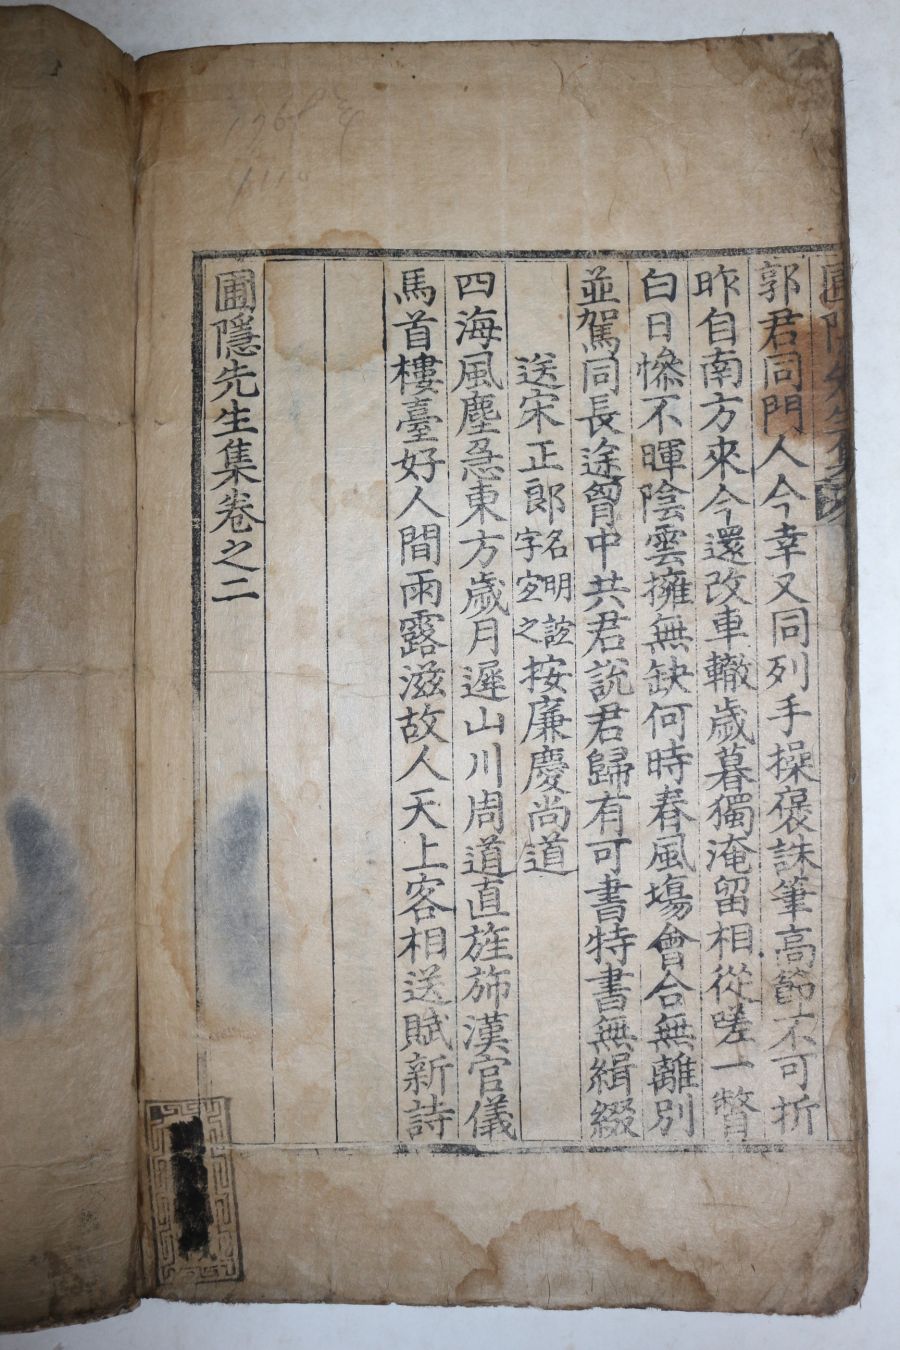 郭君同門人今幸又同列手操褒誅筆高節不可折
昨自南方來今還改車轍歲暮獨淹留相從嗟一瞥
白日慘不暉陰雲擁無缺何時春風場會合無離別
並駕同長途胷中共君說君歸有可書特書無緝綴
送宋正郎名明誼字宜之按廉慶尚道
四海風塵急東方歲月遲山川周道直旌斾漢官儀
馬首樓臺好人間雨露滋故人天上客相送賦新詩
圃隱先生集卷之二